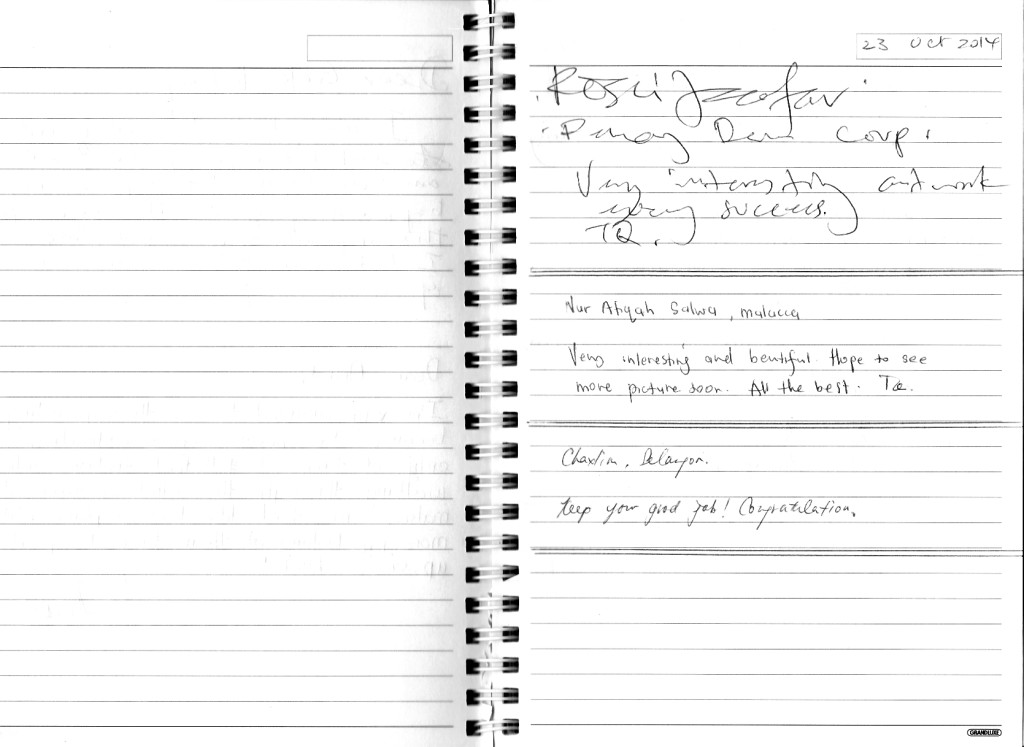 23 Oct 2014
Rosli
Corp.
Very interesting artwork
success.
TQ.
Nur Atiqah Salwa, malacca
Very interesting and beutiful. Hope to see
more picture soon. All the best. Tq.
keep your good job! Congratulation.
GRANDLUXE